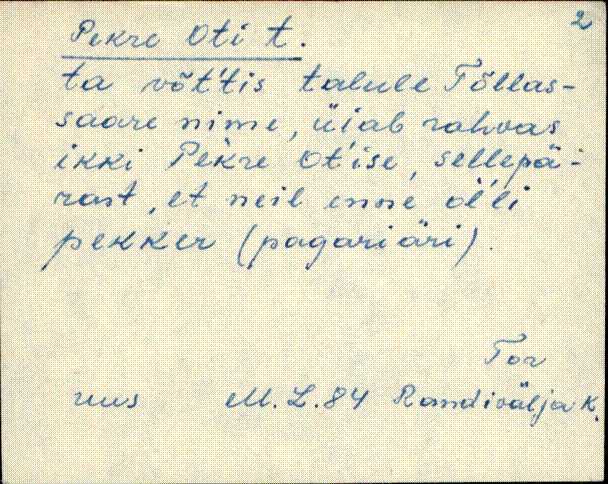 2
Pekre Oti t.
ta võt't'is talule Tõllas-
saare nime, üiab rahvas
ikki Pekre Ot'ise, sellepä-
rast, et neil enne ol'li
pekker (pagariäri).
Tor
uus M. L. 84 Randivälja k.